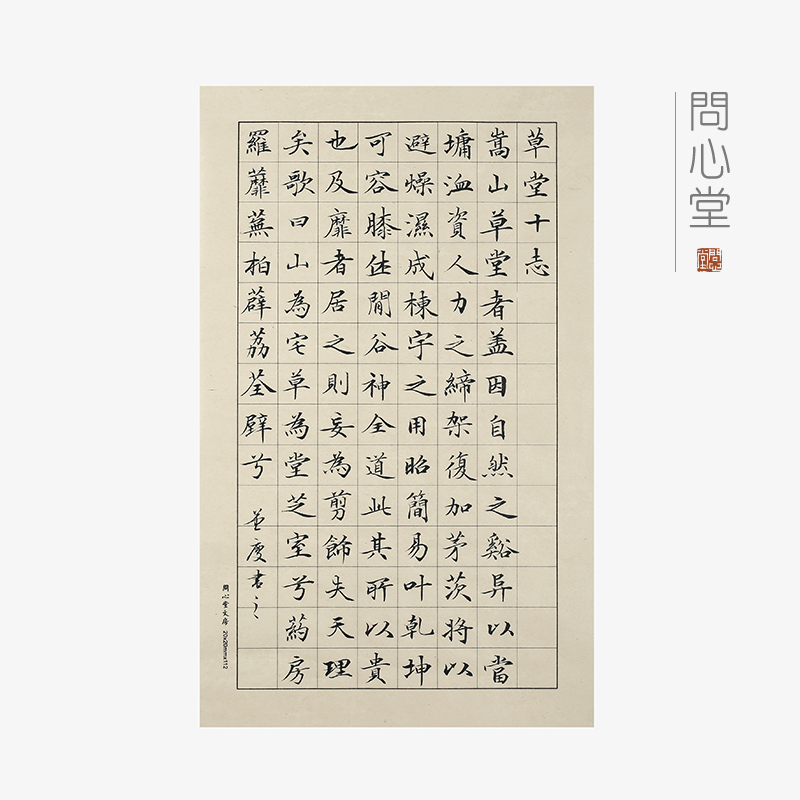 問心堂
問心堂
草堂十志
嵩山草堂者盖因自然之谿异以當
墉洫資人力之締架復加茅茨將以
避燥濕成棟宇之用昭簡易叶乾坤
可容膝休閒谷神全道此其所以貴
也及靡者居之則妄為剪飾失天理
矣歌曰山為宅草為堂芝室兮葯房
羅蘼蕪柏薜荔荃壁兮
度書之
問心堂文房 20x20mmx112